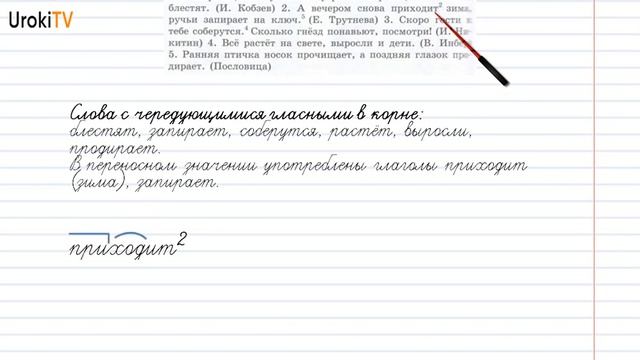 UrokiTV
блестят. (И. Кобзев) 2. А вечером снова приходит² зима,
ручьи запирает на ключ.⁵ (Е. Трутнева) 3. Скоро гости к
тебе соберутся.⁴ Сколько гнёзд понавьют, посмотри! (И. Ни-
китин) 4. Всё растёт на свете, выросли и дети. (В. Инбер)
5. Ранняя птичка носок прочищает, а поздняя глазок про-
дирает. (Пословица)
Слова с чередующимися гласными в корне:
блестят, запирает, соберутся, растёт, выросли,
продирает.
В переносном значении употреблены глаголы приходит
(зима), запирает.
приходит²